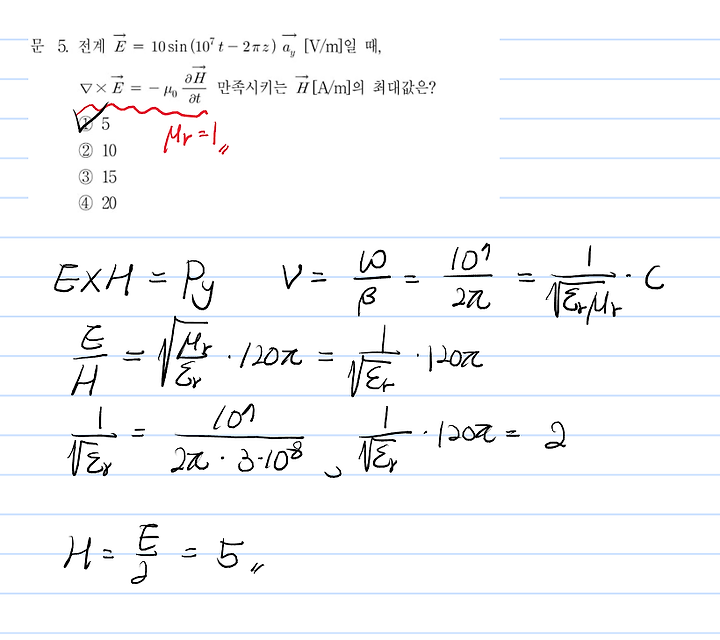 문 5. 전계 $\vec{E} = 10\sin(10^7 t - 2\pi z)\,\vec{a_y}$ [V/m]일 때,
$\nabla \times \vec{E} = -\mu_0 \frac{\partial \vec{H}}{\partial t}$ 만족시키는 $\vec{H}$[A/m]의 최대값은?
① 5
μr = 1 〃
② 10
③ 15
④ 20
E×H = Py  V = $\frac{\omega}{\beta} = \frac{10^7}{2\pi} = \frac{1}{\sqrt{\varepsilon_r \mu_r}} \cdot C$
$\frac{E}{H} = \sqrt{\frac{\mu_r}{\varepsilon_r}} \cdot 120\pi = \frac{1}{\sqrt{\varepsilon_r}} \cdot 120\pi$
$\frac{1}{\sqrt{\varepsilon_r}} = \frac{10^7}{2\pi \cdot 3 \cdot 10^8}$ , $\frac{1}{\sqrt{\varepsilon_r}} \cdot 120\pi = 2$
$H = \frac{E}{2} = 5$ 〃